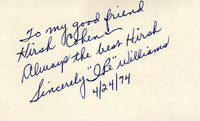 To my good friend
Hirsh Cohen
Always the best Hirsh
Sincerely "Ike" Williams
4/24/74